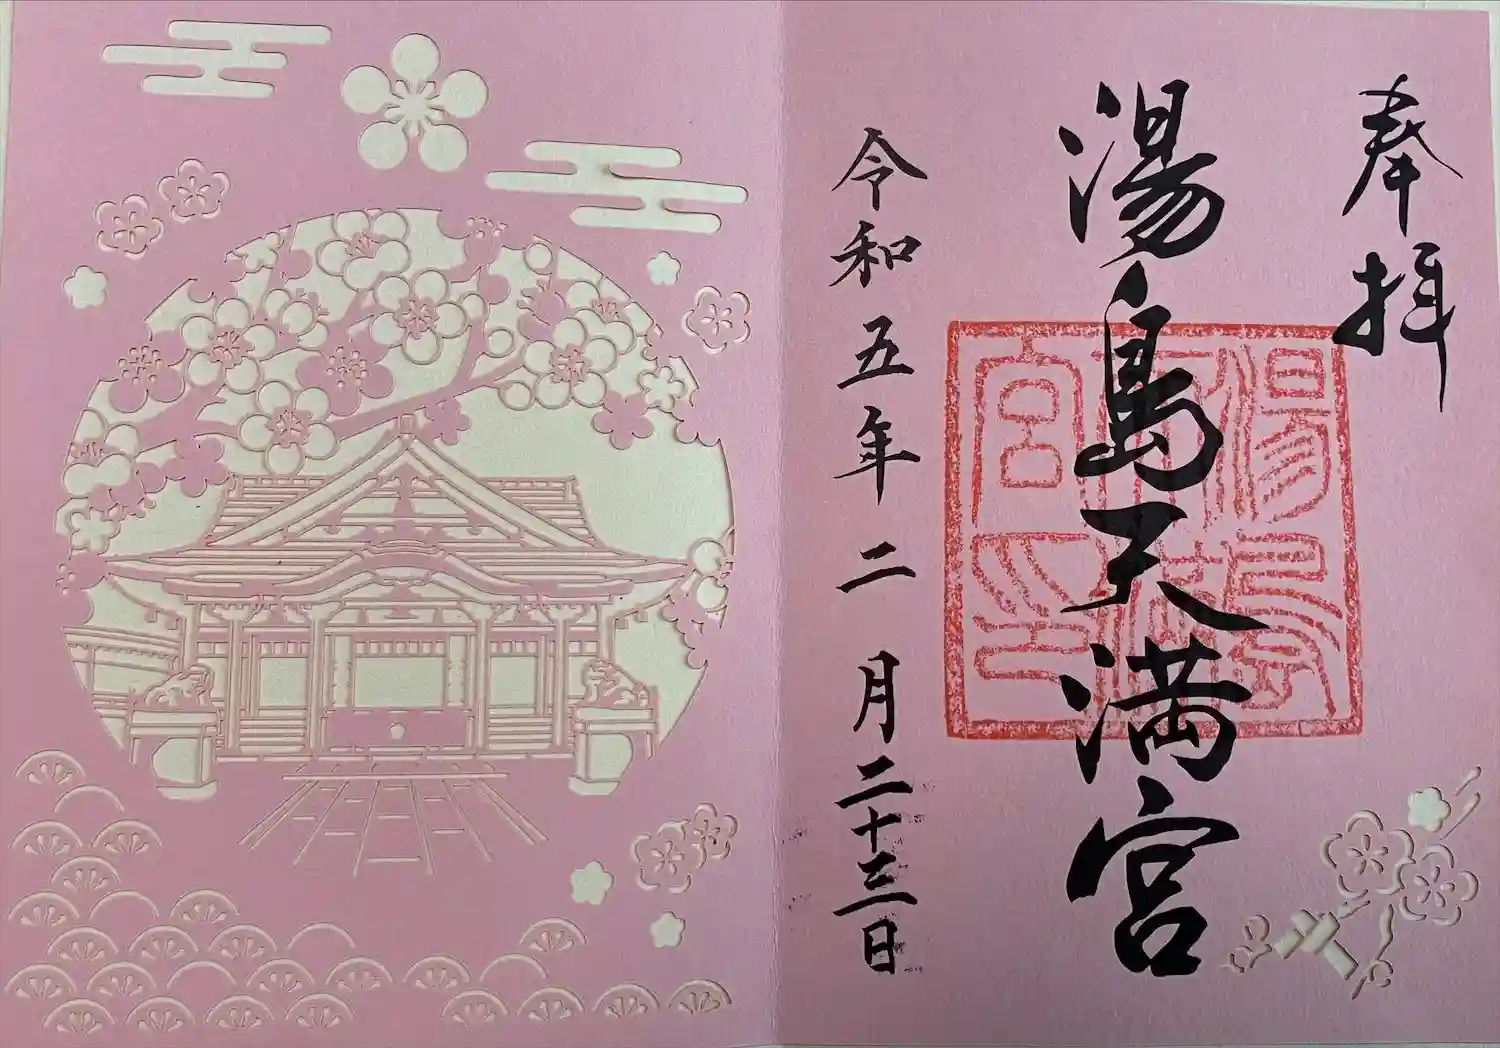 奉拝
湯島天満宮
湯島天満宮印
令和五年二月二十三日